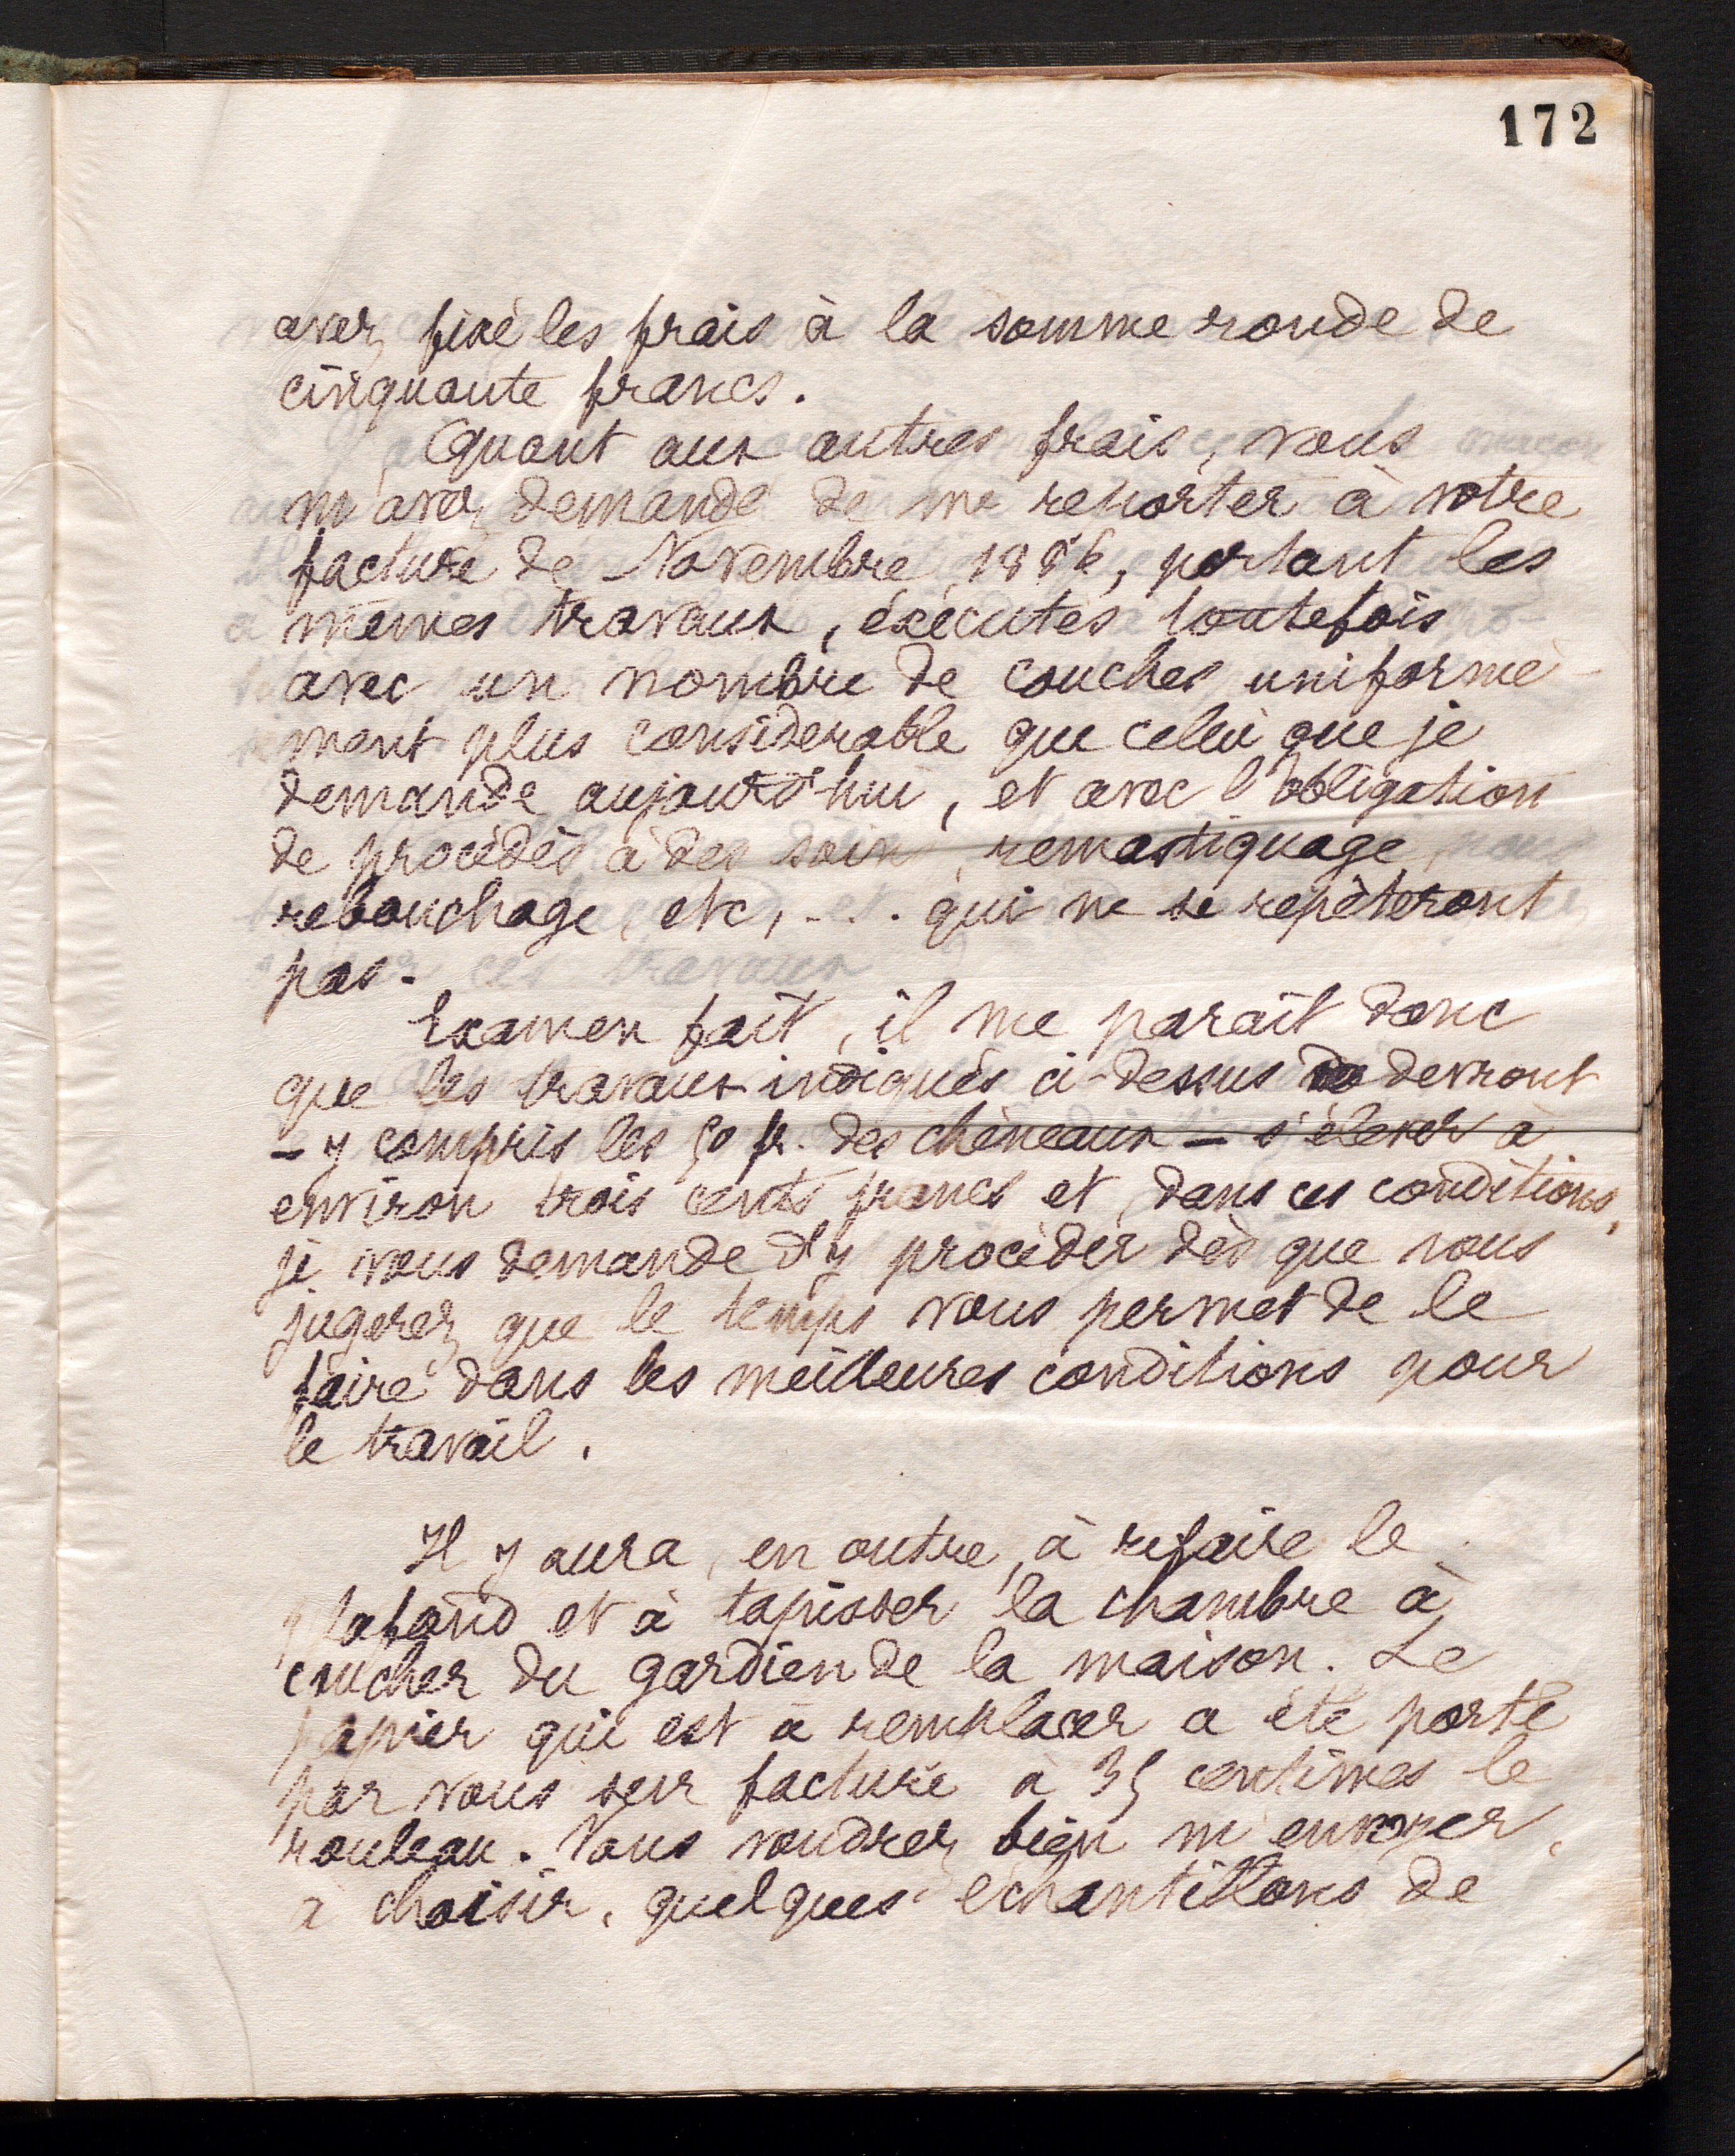 172
avez fixé les frais à la somme ronde de
cinquante francs.
Quant aux autres frais, vous
m'avez demandé de me reporter à votre
facture de Novembre 1886, portant les
mêmes travaux, éxécutés toutefois
avec un nombre de couches uniformé-
ment plus considérable que celui que je
demande aujourd'hui, et avec l'obligation
de procédés à des soins, remastiquage,
rebouchage, etc, ... qui ne se repèteront
pas.
Examen fait, il me paraît donc
que les travaux indiqués ci-dessus devront
- y compris les 50 fr. des chéneaux - s'élever à
environ trois cents francs et, dans ces conditions,
je vous demande d'y procéder dès que vous
jugerez que le temps vous permet de le
faire dans les meilleures conditions pour
le travail.
Il y aura, en outre, à refaire le
plafond et à tapisser la chambre à
coucher du gardien de la maison. Le
papier qui est à remplacer a été porté
par vous sur facture à 35 centimes le
rouleau. Vous voudrez bien m'envoyer,
à choisir, quelques échantillons de